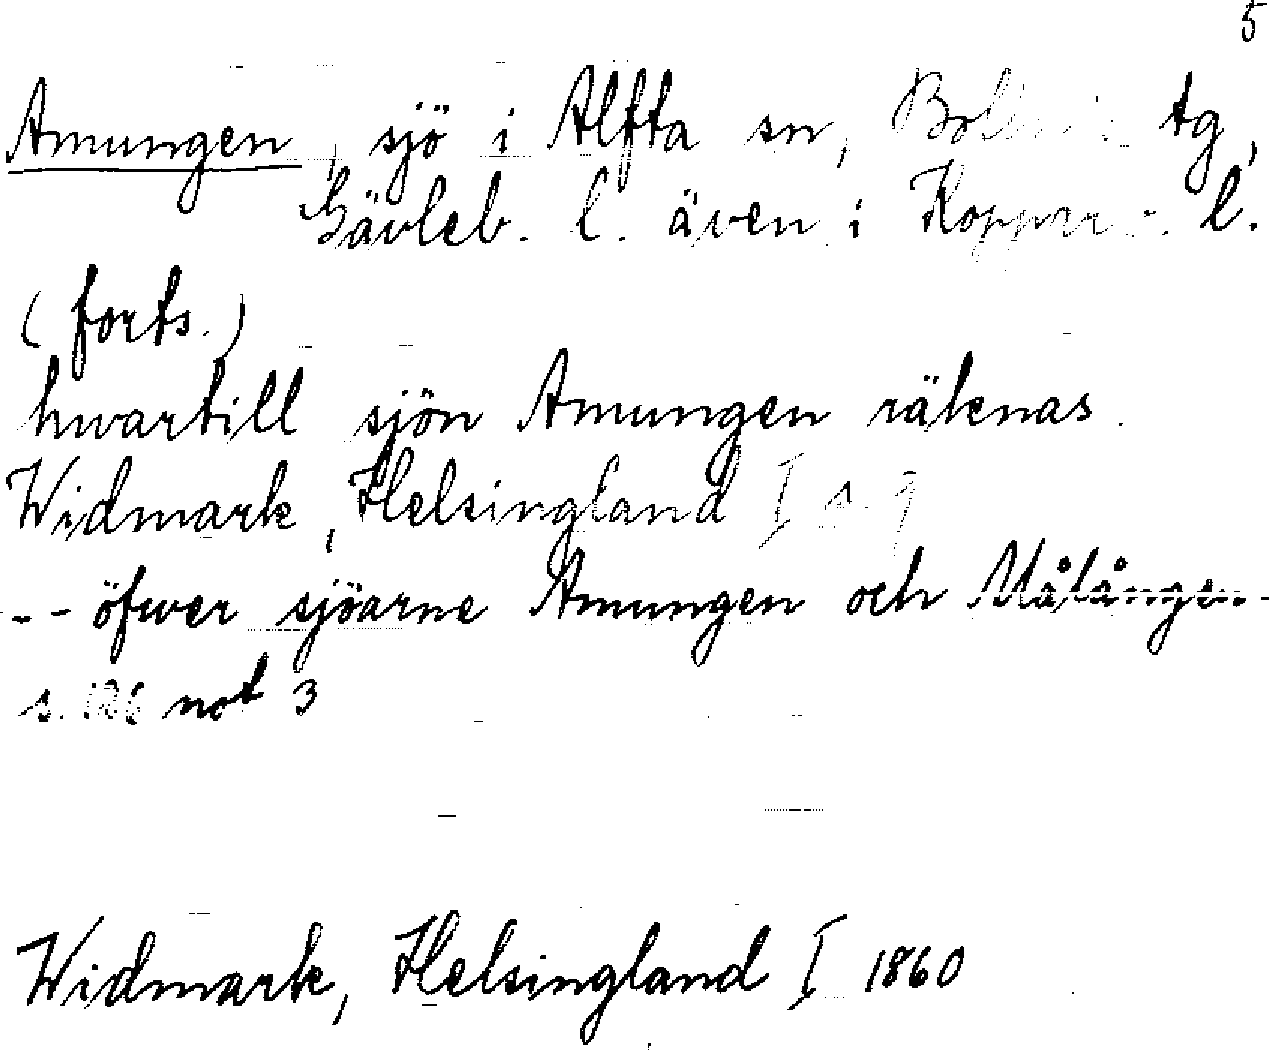 5
Amungen, sjö i Alfta sn, tg,
Gävleb. l. även i l.
(forts.)
hwartill sjön Amungen räknas.
Widmark, Helsingland I s. 9
-- öfwer sjöarne Amungen och Målången--
s. 126 not 3
Widmark, Helsingland I 1860